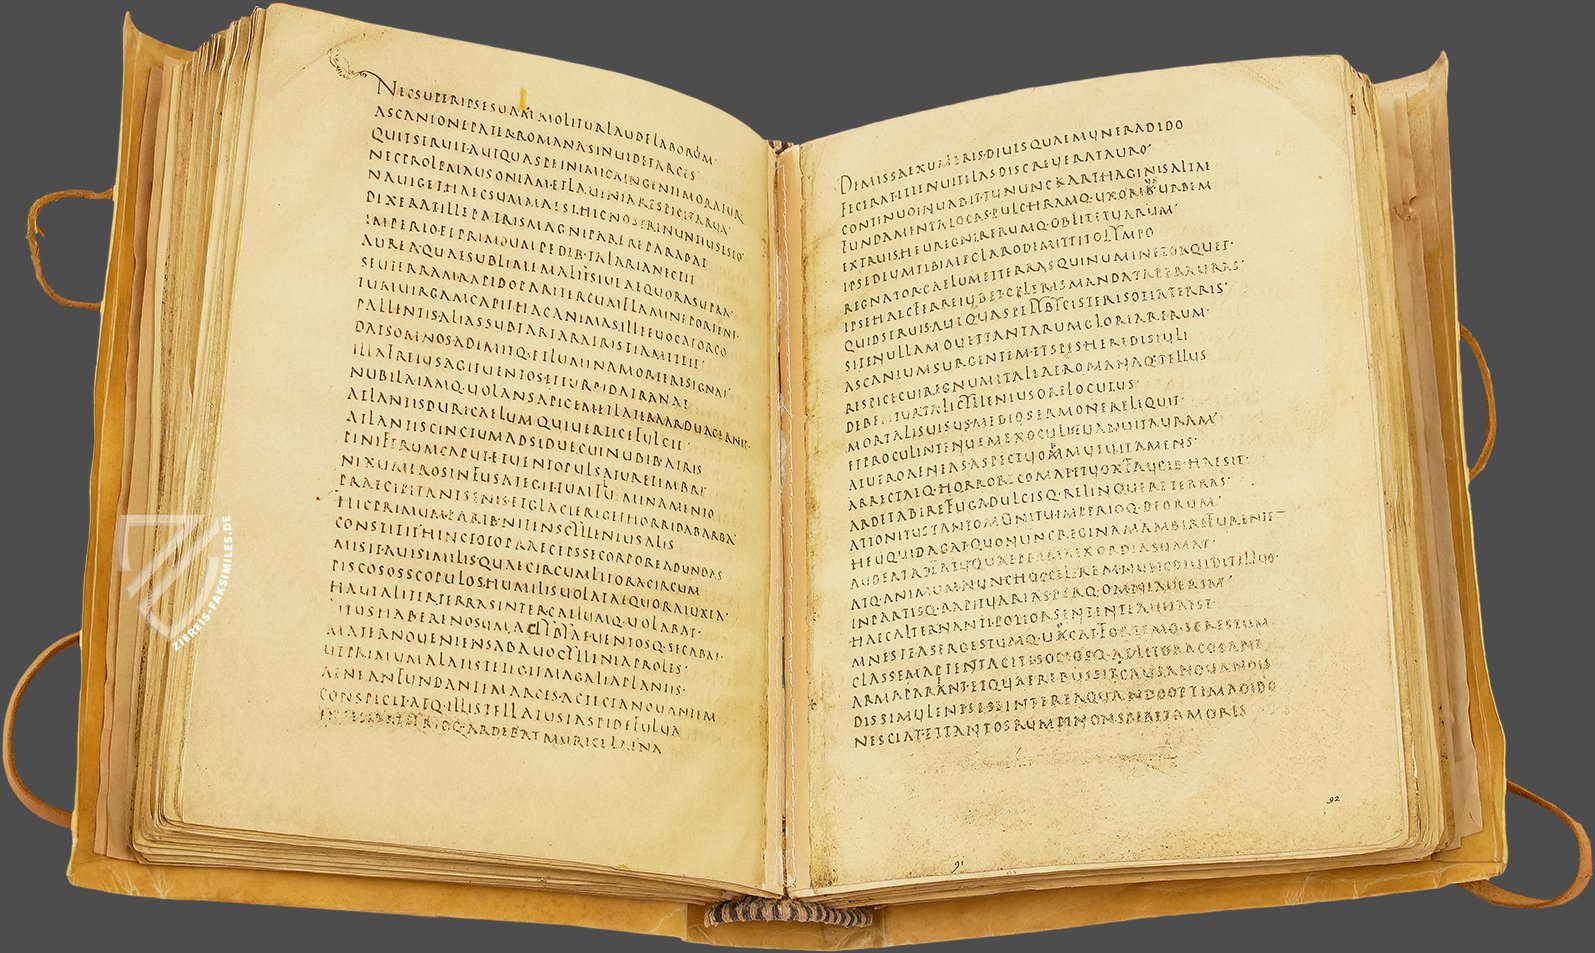 NECSUPERIPSESUAMMOLITURLAUDELABOREM·
ASCANIONEPATERROMANASINUIDETARCES·
QUITSTRUIT·AUTQUASPEINIMICAINGENTEMORATUR
NECPROLEMAUSONIAMETLAUINIARESPICITARUA·
NAUIGETHAECSUMMAEST·HICNOSTRINUNTIUSESTO·
DIXERATILLEPATRISMAGNIPAREREPARABAT
IMPERIO·ETPRIMUMPEDIB·TALARIANECTIT
AUREA·QUAESUBLIMEMALISSIUEAEQUORASUPRA·
SEUTERRAMRAPIDOPARITERCUMFLAMINEPORTENT·
TUMUIRGAMCAPITHACANIMASILLEEUOCATORCO
PALLENTIS·ALIASSUBTARTARATRISTIAMITTIT·
DATSOMNOSADIMITQ·ETLUMINAMORTERESIGNAT·
ILLAFRETUSAGITUENTOS·ETTURBIDATRANAT
NUBILA·IAMQ·UOLANSAPICEMETLATERAARDUACERNIT·
ATLANTISDURICAELUMQUIUERTICEFULCIT·
ATLANTISCINCTUMADSIDUECUINUBIB·ATRIS
PINIFERUMCAPUT·ETUENTOPULSATURETIMBRI·
NIXUMEROSINFUSATEGITTUMFLUMINAMENTO
PRAECIPITANTSENIS·ETGLACIERIGETHORRIDABARBA·
HICPRIMUMPARIB·NITENSCYLLENIUSALIS
CONSTITIT·HINCTOTOPRAECEPSSECORPOREADUNDAS
MISIT·AUISIMILISQUAECIRCUMLITORACIRCUM
PISCOSOSSCOPULOSHUMILISUOLATAEQUORAIUXTA·
HAUTALITERTERRASINTERCAELUMQ·UOLABAT·
LITUSHARENOSUMACLIBYAEUENTOSQ·SECABAT·
MATERNOUENIENSABAUOCYLLENIAPROLES·
UTPRIMUMALATISTETIGITMAGALIAPLANTIS·
AENEANFUNDANTEMARCES·ACTECTANOUANTEM
CONSPICIT·ATQ·ILLISTELLATUSIASPIDEFULUA
ENSISERAT·TYRIOQ·ARDEBATMURICELAENA
DEMISSAEXUMERIS·DIUESQUAEMUNERADIDO
FECERAT·ETTENUITELASDISCREUERATAURO·
CONTINUOINUADIT·TUNUNCKARTHAGINISALTAE
FUNDAMENTALOCAS·PULCHRAMQ·UXORIUSURBEM
EXTRUIS·HEUREGNIRERUMQ·OBLITETUARUM·
IPSEDEUMTIBIMECLARODEMITTITOLYMPO
REGNATORCAELUMETTERRASQUINUMINETORQUET·
IPSEHAECFERREIUBETCELERISMANDATAPERAURAS·
QUIDSTRUIS·AUTQUASPELIBYCISTERISOTIATERRIS·
SITENULLAMOUETTANTARUMGLORIARERUM·
ASCANIUMSURGENTEMETSPESHEREDISIULI
RESPICECUIREGNUMITALIAEROMANAQ·TELLUS
DEBETURTALICYLLENIUSORELOCUTUS·
MORTALISUISUSMEDIOSERMONERELIQUIT·
ETPROCULINTENUEMEXOCULISEUANUITAURAM·
ATUEROAENEASASPECTUOMMUTUITAMENS·
ARRECTAEQ·HORRORECOMAEETUOXFAUCIB·HAESIT·
ARDETABIREFUGADULCISQ·RELINQUERETERRAS·
ATTONITUSTANTOMONITUIMPERIOQ·DEORUM·
HEUQUIDAGAT·QUONUNCREGINAMAMBIREFURENTEM
AUDEATADFATU·QUAEPRIMAEXORDIASUMAT·
ATQ·ANIMUMNUNCHUCCELEREMNUNCDIUIDITILLUC·
INPARTISQ·RAPITUARIASPERQ·OMNIAUERSAT·
HAECALTERNANTIPOTIORSENTENTIAUISAEST·
MNESTEASERGESTUMQ·UOCATFORTEMQ·SERESTUM
CLASSEMAPTENTTACITI·SOCIOSQ·ADLITORACOGANT
ARMAPARENT·ETQUAEREBUSSITCAUSANOUANDIS
DISSIMULENT·SESEINTEREAQUANDOOPTIMADIDO
NESCIAT·ETTANTOSRUMPINONSPERETAMORES
92
91
ZIEREIS-FAKSIMILES.DE